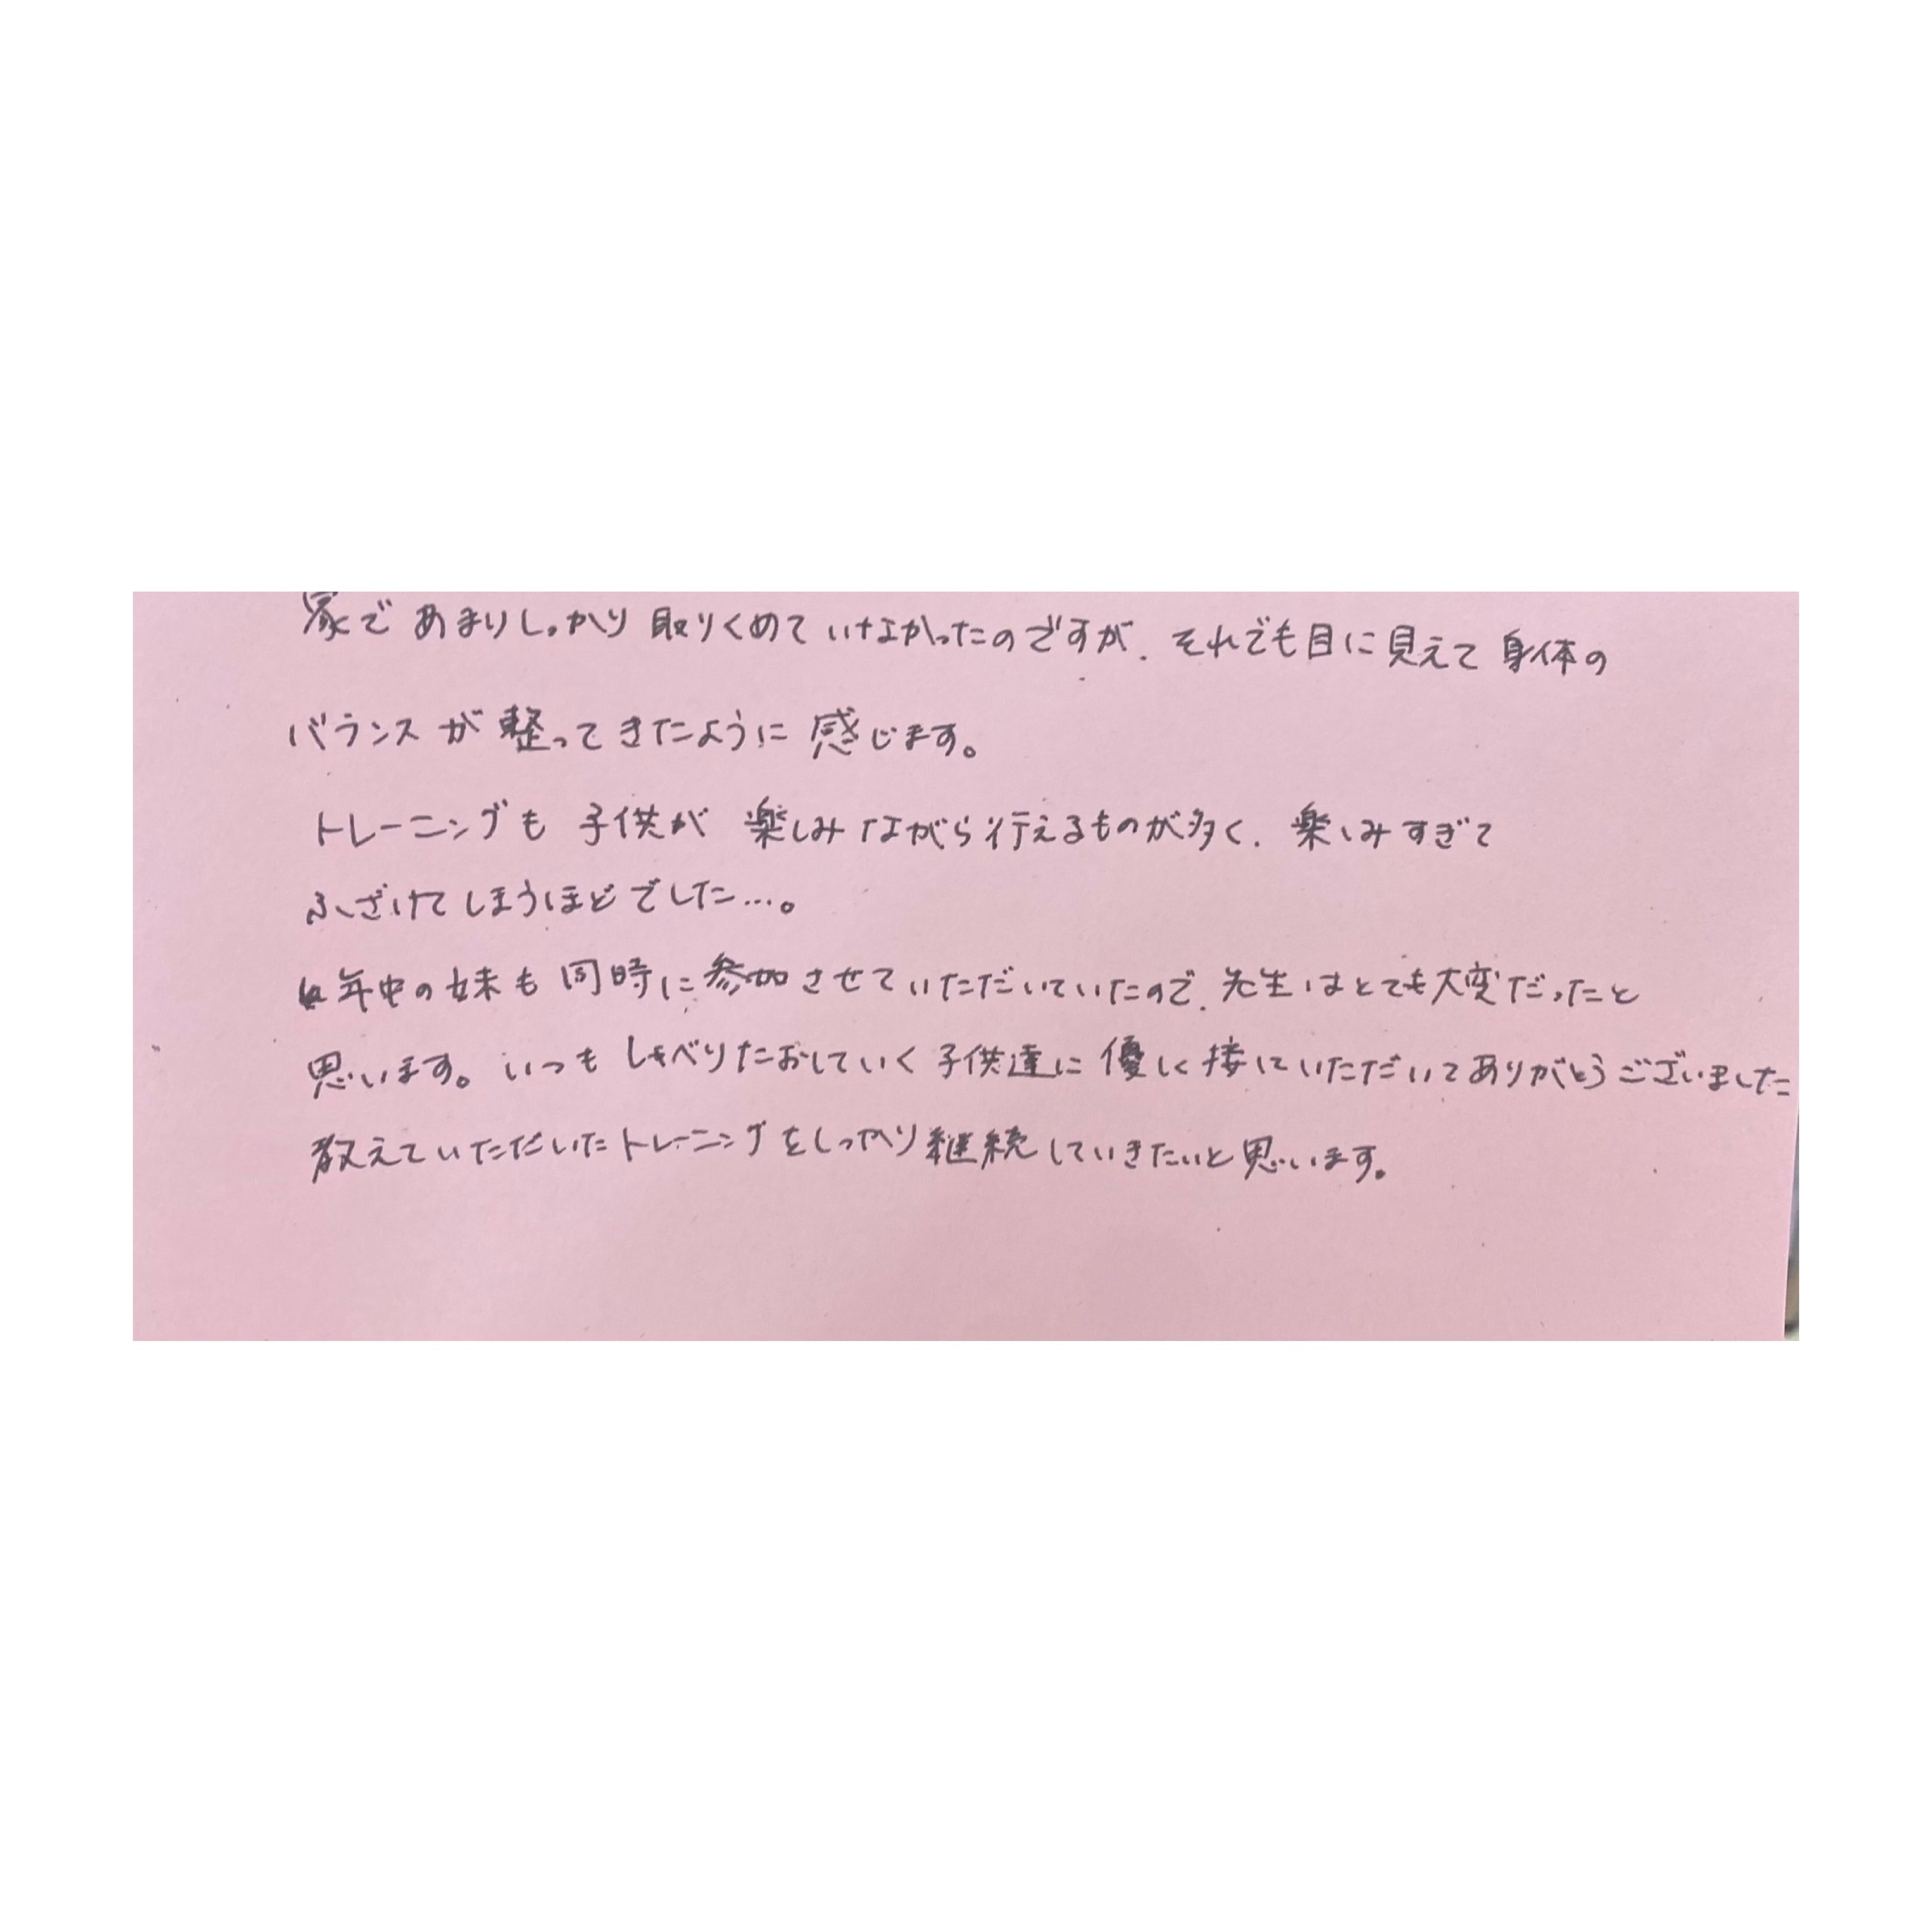 家であまりしっかり取りくめていなかったのですが、それでも目に見えて身体の
バランスが整ってきたように感じます。
トレーニングも子供が楽しみながら行えるものが多く、楽しみすぎて
ふざけてしまうほどでした…。
年中の妹も同時に参加させていただいていたので、先生はとても大変だったと
思います。いつもしゃべりたおしていく子供達に優しく接していただいてありがとうございました
教えていただいたトレーニングをしっかり継続していきたいと思います。